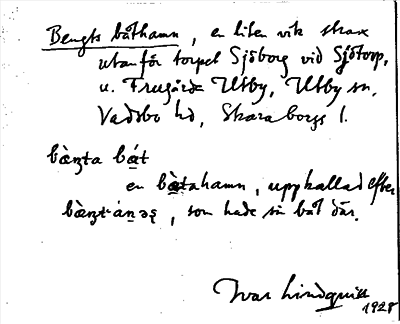 Bengts båthamn, en liten vik strax
utanför torpet Sjöborg vid Sjötorp,
u. Frugårde Utby, Utby sn,
Vadsbo hd, Skaraborgs l.
bæ̀ŋta bå̀t
en bå̀tahamn, uppkallad efter
bæ̀ŋt, som hade sin båt där.
Ivar Lindquist
1928